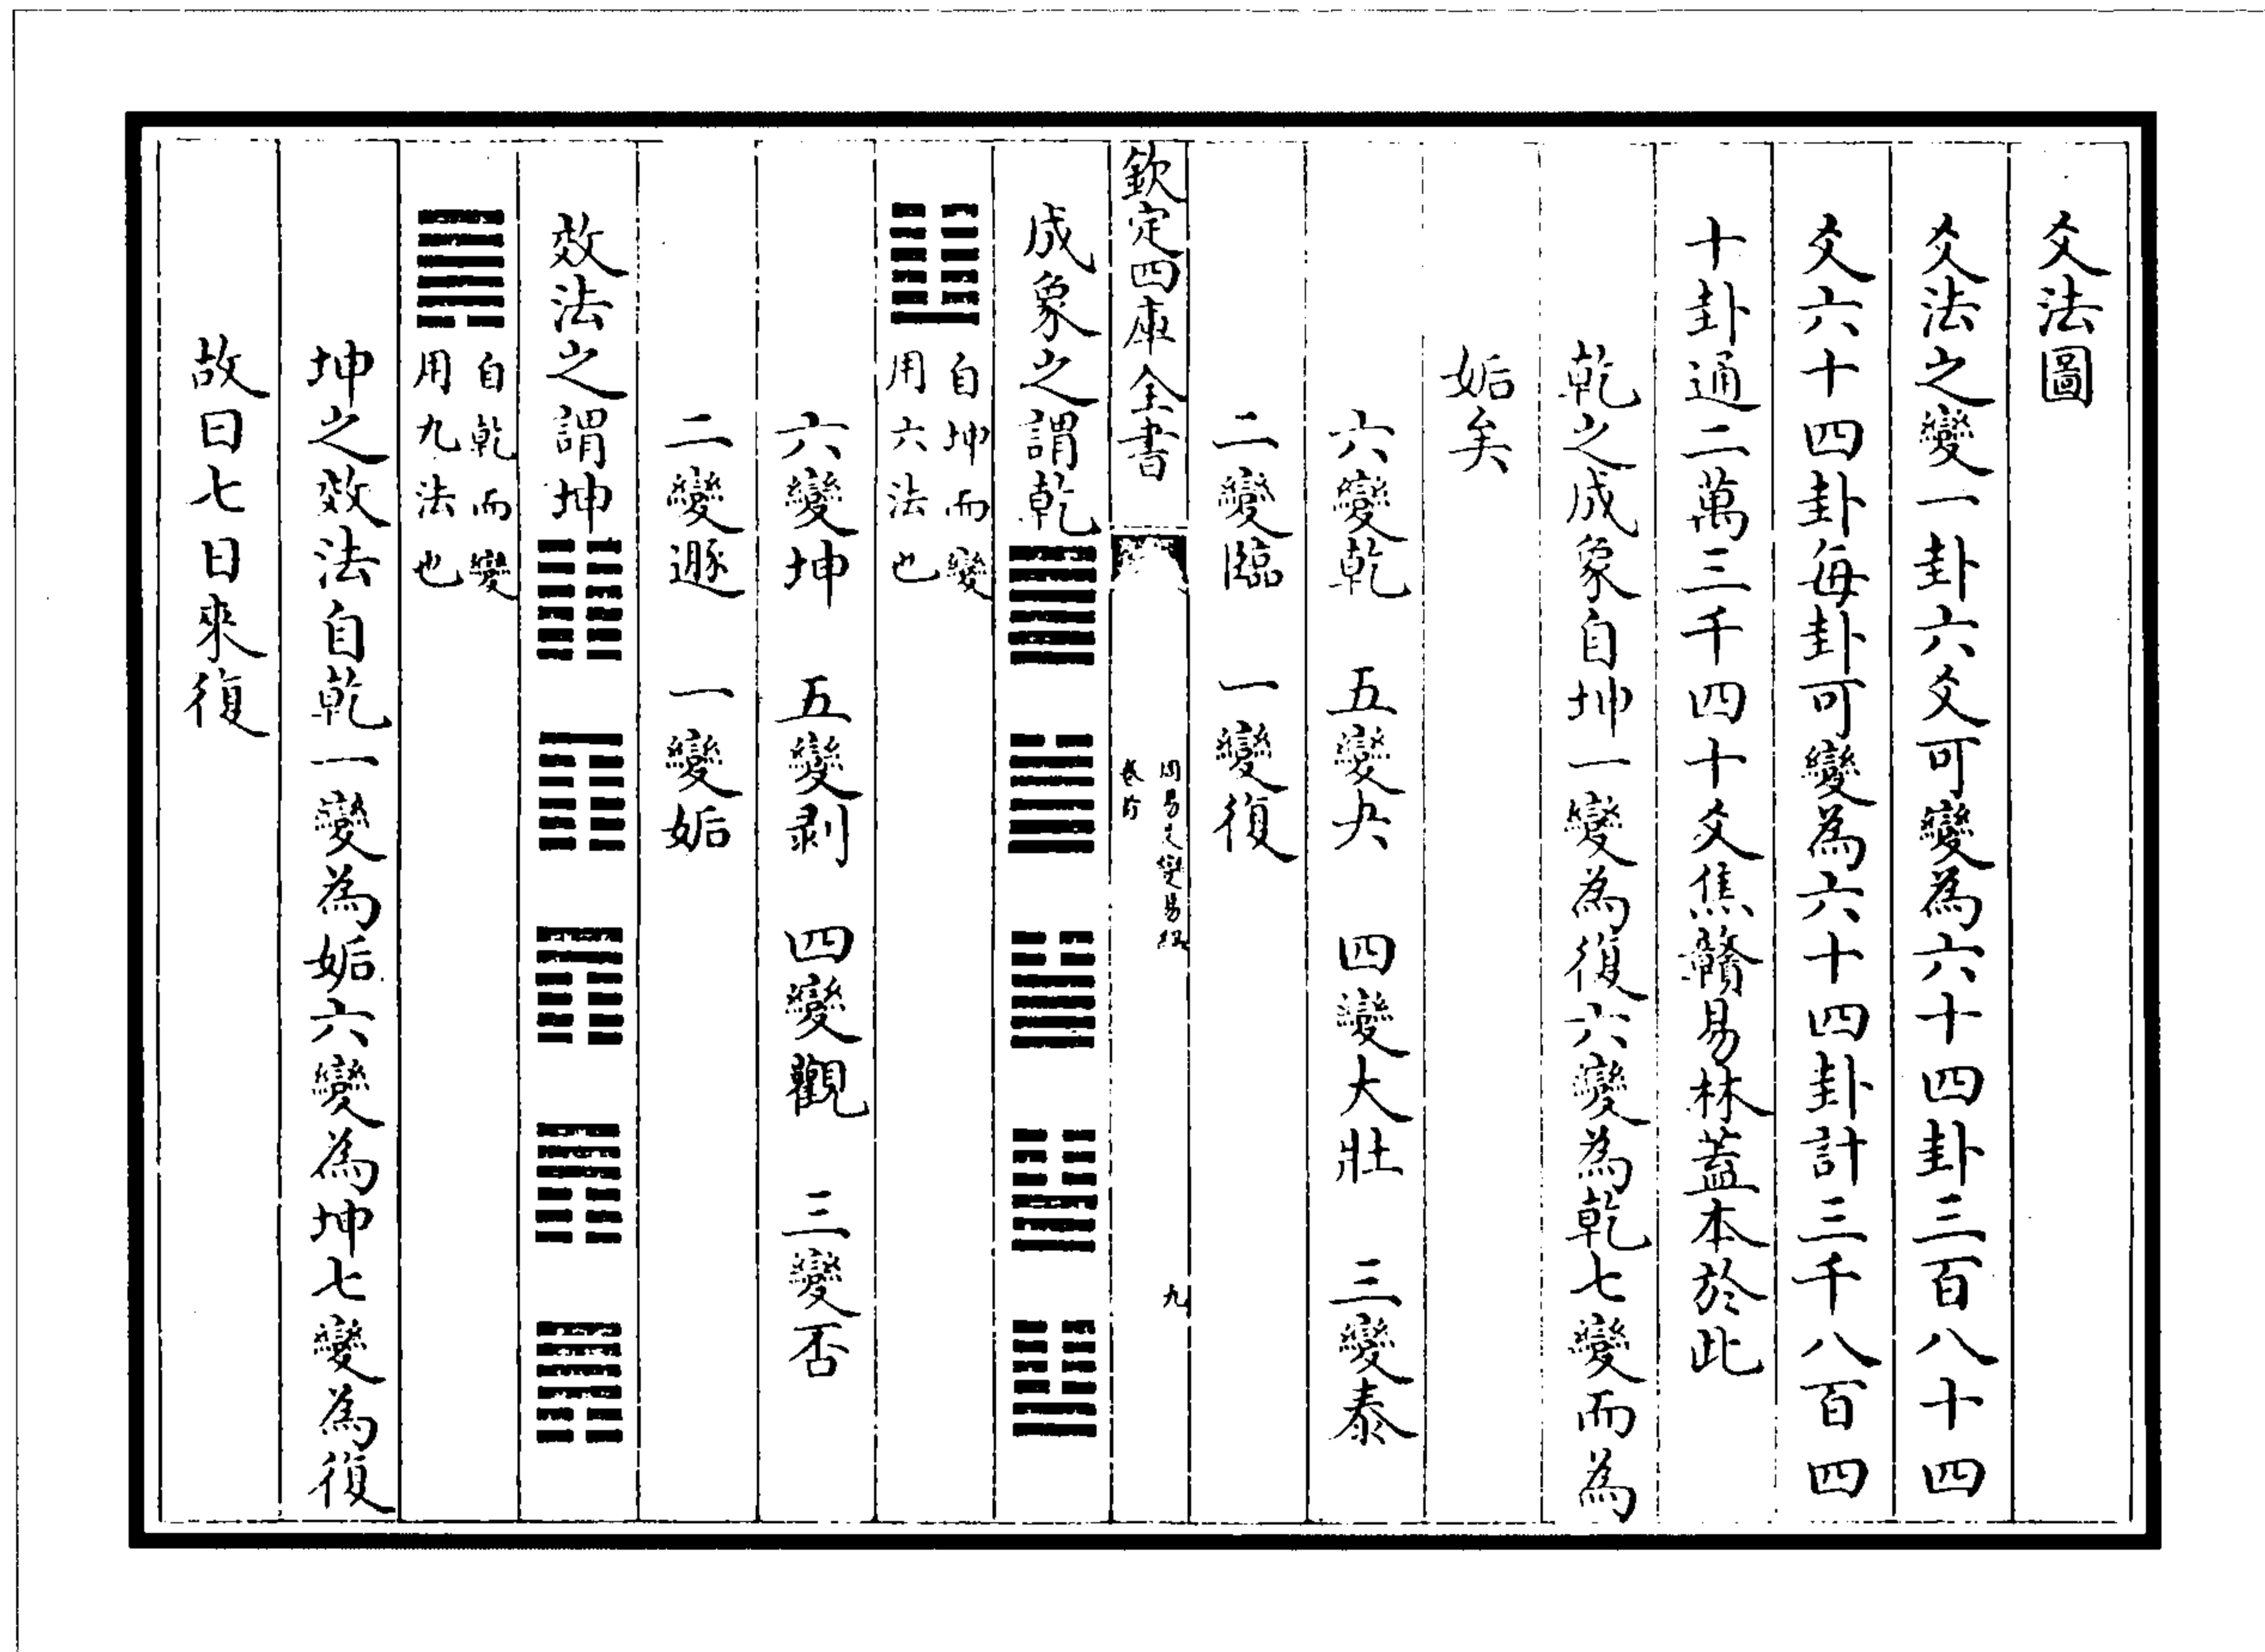 爻法圖
爻法之變一卦六爻可變為六十四卦三百八十四
爻六十四卦每卦可變為六十四卦計三千八百四
十卦通二萬三千四十爻焦贛易林蓋本於此
乾之成象自坤一變為復六變為乾七變而為
姤矣
六變乾 五變夬 四變大壯 三變泰
二變臨 一變復
欽定四庫全書
周易爻變易縕
卷首
九
成象之謂乾 ䷀ ䷪ ䷡ ䷊ ䷒
䷗
自坤而變
用六法也
六變坤 五變剥 四變觀 三變否
二變遯 一變姤
效法之謂坤 ䷁ ䷖ ䷓ ䷋ ䷠
䷫
自乾而變
用九法也
坤之效法自乾一變為姤六變為坤七變為復
故曰七日來復